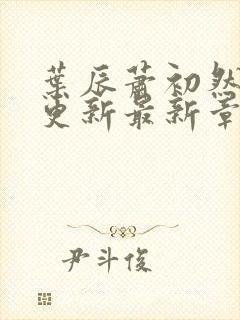 葉辰蕭初然
更新最新章
尹斗俊